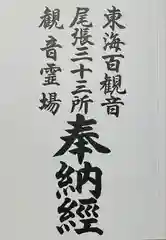 東海百觀音
尾張三十三所
観音霊場
奉納經